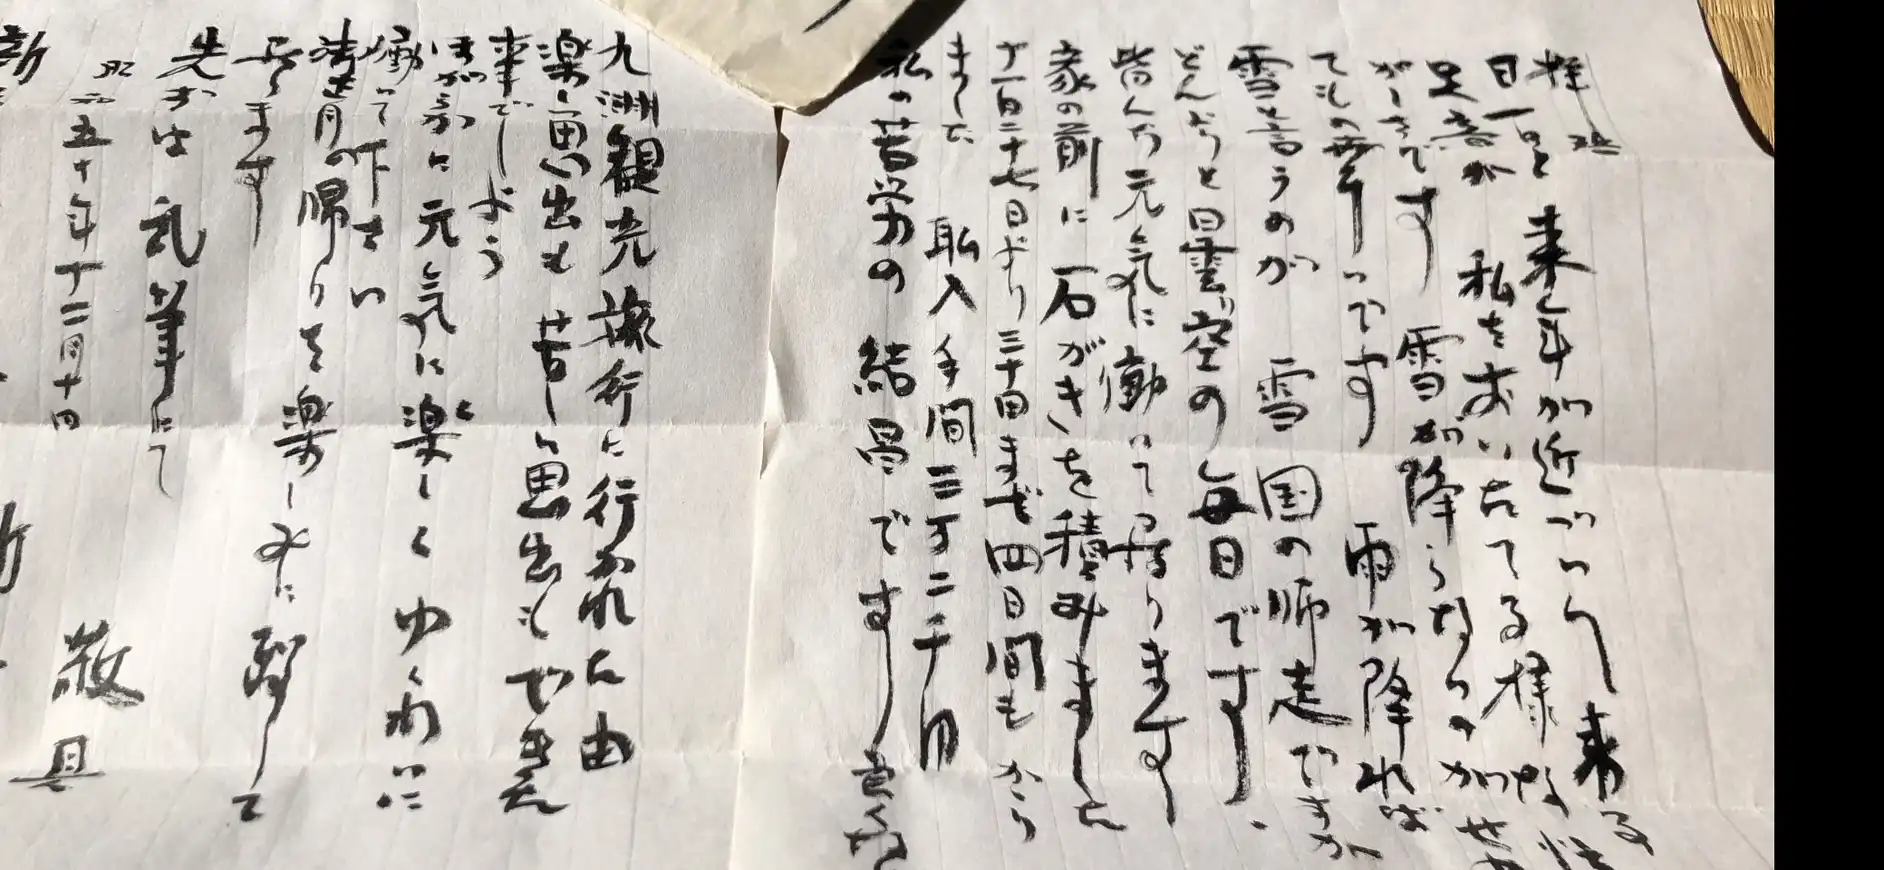 拝啓
日一日と来年が近づいり来る
足音が私をおいたてる様な
がしきです雪が降らなのがせ
てもの幸いです雨が降れば
雪と言うのが雪国の師走ですが
どんよりと曇空の毎日です
皆んな元気に働いて居ります
家の前に石がきを積みました
十一月二十七日より三十日まで四日間もかり
ました 私入手間三万二千円
私の苦労の結晶です
九洲観光旅行に行かれた由
楽し思出も苦しい思出もできた
事でしょう
ほがらかに元気に楽しくゆくわいに
働いて下さい
お正月の帰りを楽しみに致して
居ります
先ずは乱筆にて
五十年十二月十日
敬具